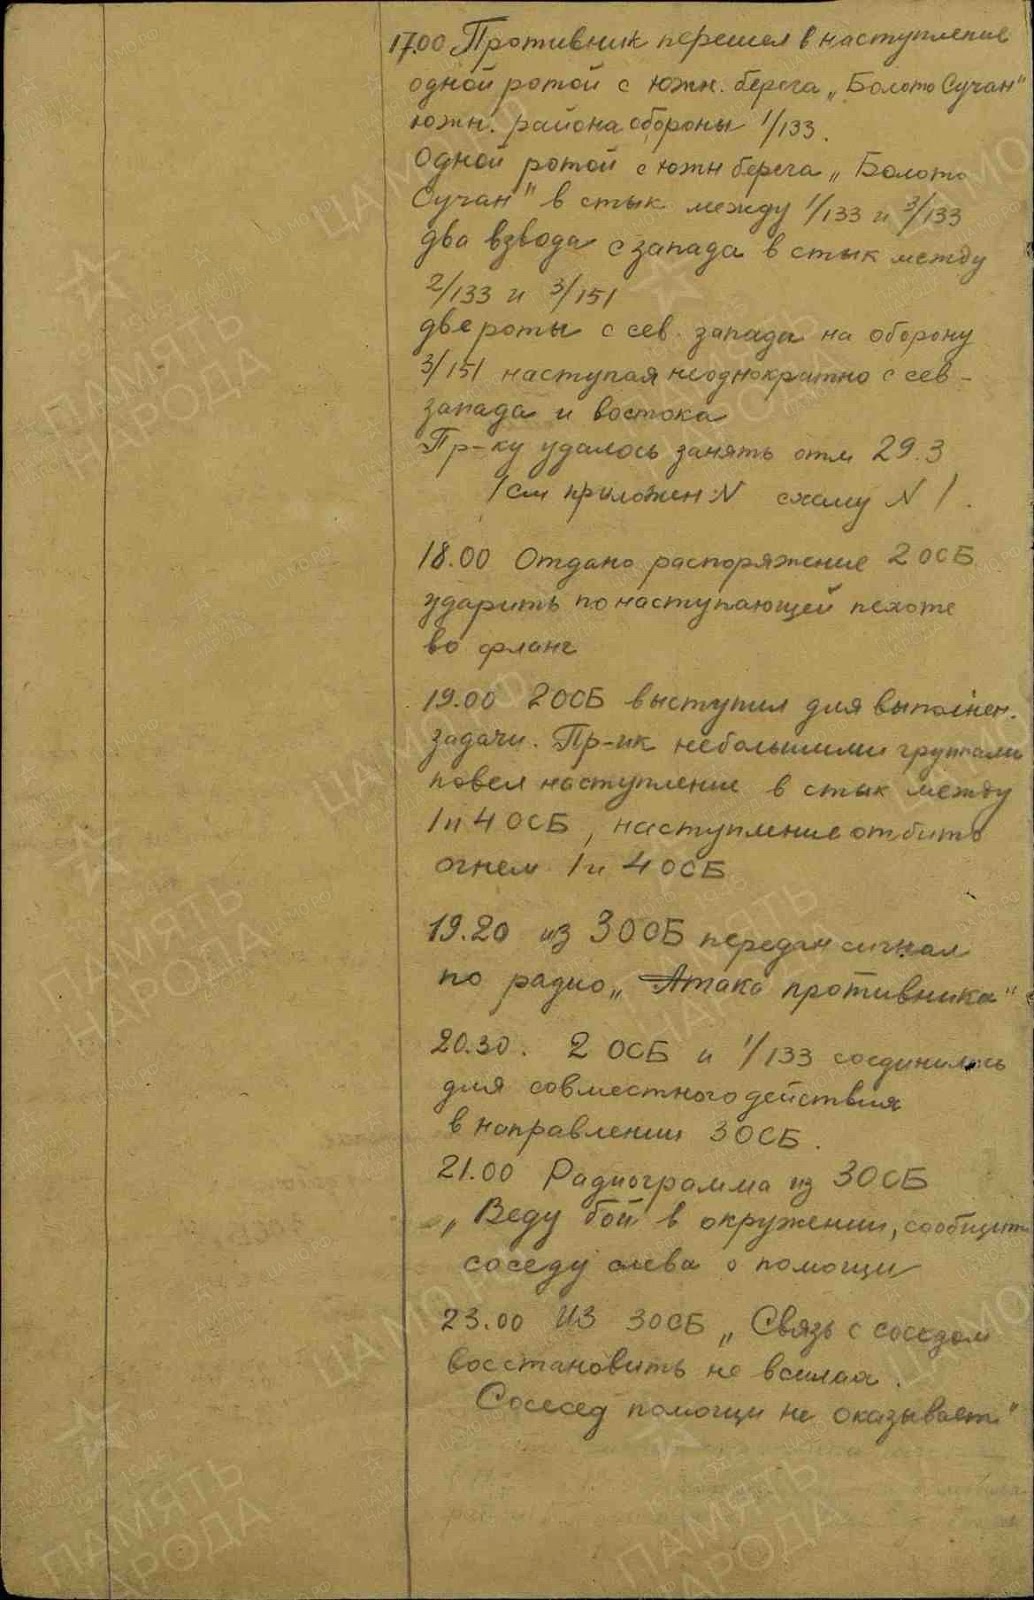 17.00 Противник перешел в наступление
одной ротой с южн. берега „Болото Сучан"
южн. района обороны 1/133.
Одной ротой с южн берега „Болото
Сучан" в стык между 1/133 и 3/133
два взвода с запада в стык между
2/133 и 3/151
две роты с сев. запада на оборону
3/151 наступая неоднократно с сев-
запада и востока
Пр-ку удалось занять отм 29.3
/см приложен: N схему N 1.
18.00 Отдано распоряжение 2 ОСБ
ударить по наступающей пехоте
во фланг
19.00 2 ОСБ выступил для выполнен.
задачи. Пр-ик небольшими группами
повел наступление в стык между
1 и 4 ОСБ, наступление отбито
огнем 1 и 4 ОСБ
19.20 из 3 ОСБ передан сигнал
по радио „Атака противника"
20.30. 2 ОСБ и 1/133 соединились
для совместного действия
в направлении 3 ОСБ.
21.00 Радиограмма из 3 ОСБ
„Веду бой в окружении, сообщит
соседу слева о помощи
23.00 ИЗ 3 ОСБ „Связь с соседом
восстановить не всилах.
Сосесед помощи не оказывает"
ПАМЯТЬ
НАРОДА
ЦАМО.РФ